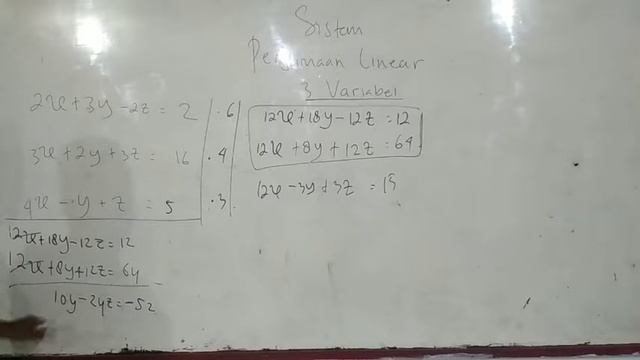 Sistem
Persamaan Linear
3 Variabel
2x+3y-2z = 2 | ·6
3x+2y+3z = 16 | ·4
4x-y+z = 5 | ·3
12x+18y-12z = 12
12x+8y+12z = 64
12x-3y+3z = 15
12x+18y-12z = 12
12x+8y+12z = 64 -
10y-24z = -52